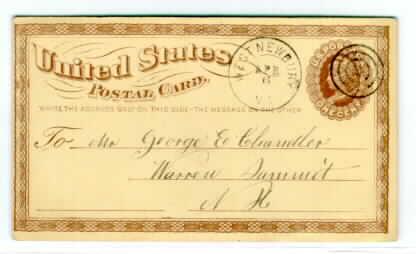 United States
POSTAL CARD.
WEST NEWBURY
APR
6
VT.
U.S. POSTAGE
ONE CENT
WRITE THE ADDRESS ONLY ON THIS SIDE - THE MESSAGE ON THE OTHER
To Mr George E Chandler
Warren Summit
N H